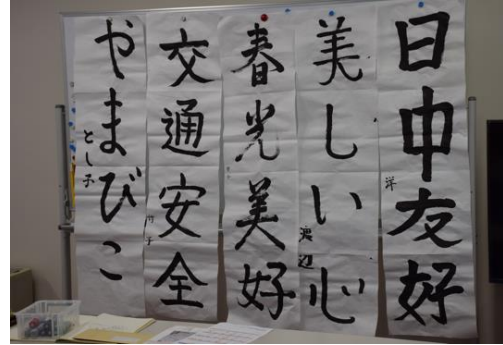 日中友好
洋
美しい心
渡辺
春光美好
交通安全
やまびこ
とし子